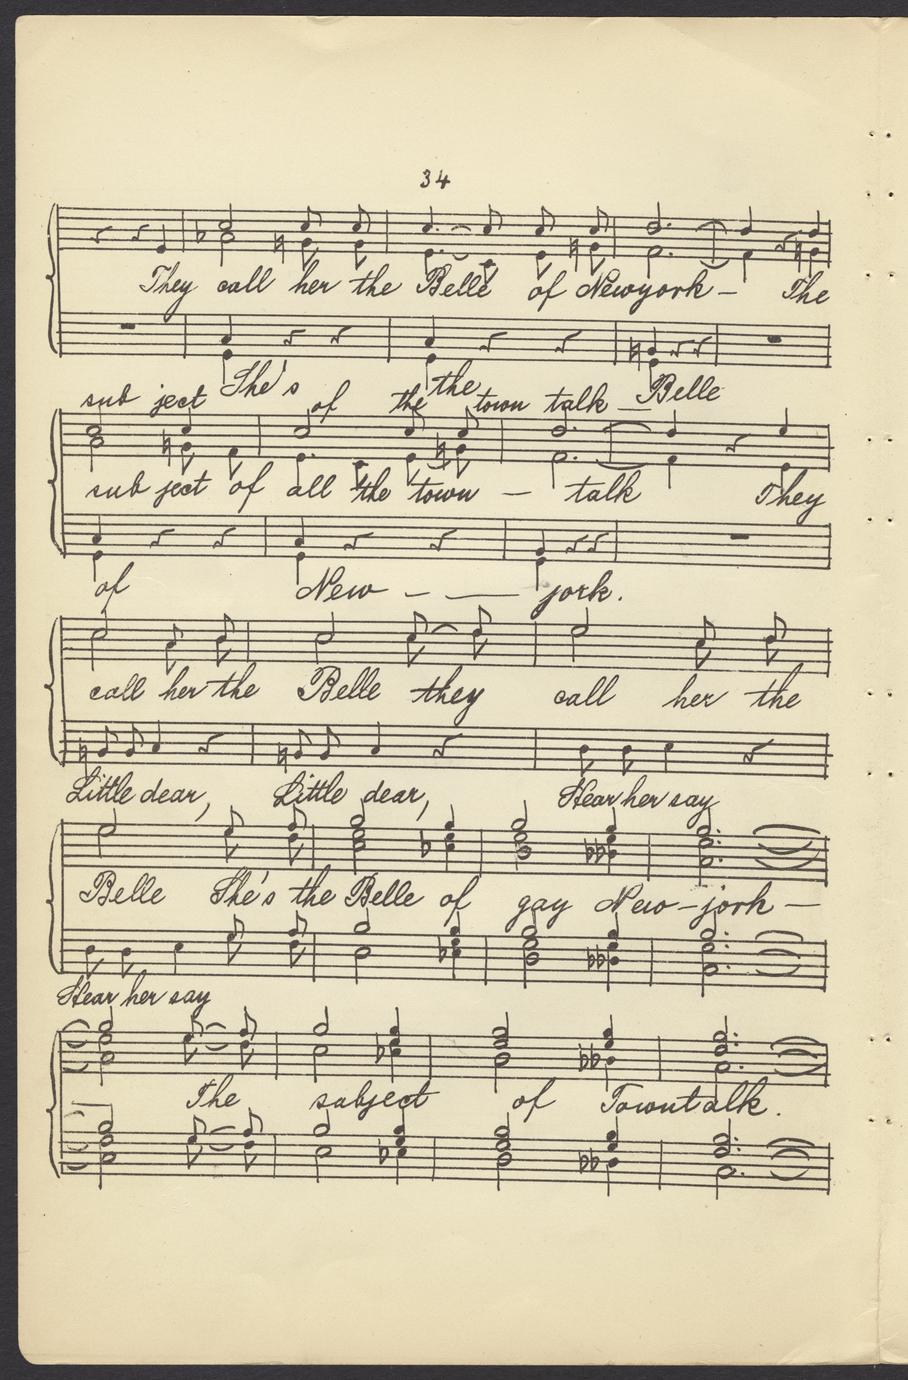 34
They call her the Belle of Newyork — The
She's the Belle
sub ject of the town talk —
sub ject of all the town — talk They
of New — — york.
call her the Belle they call her the
Little dear, Little dear, Hear her say
Belle She's the Belle of gay New-york —
Hear her say
The subject of Towntalk.